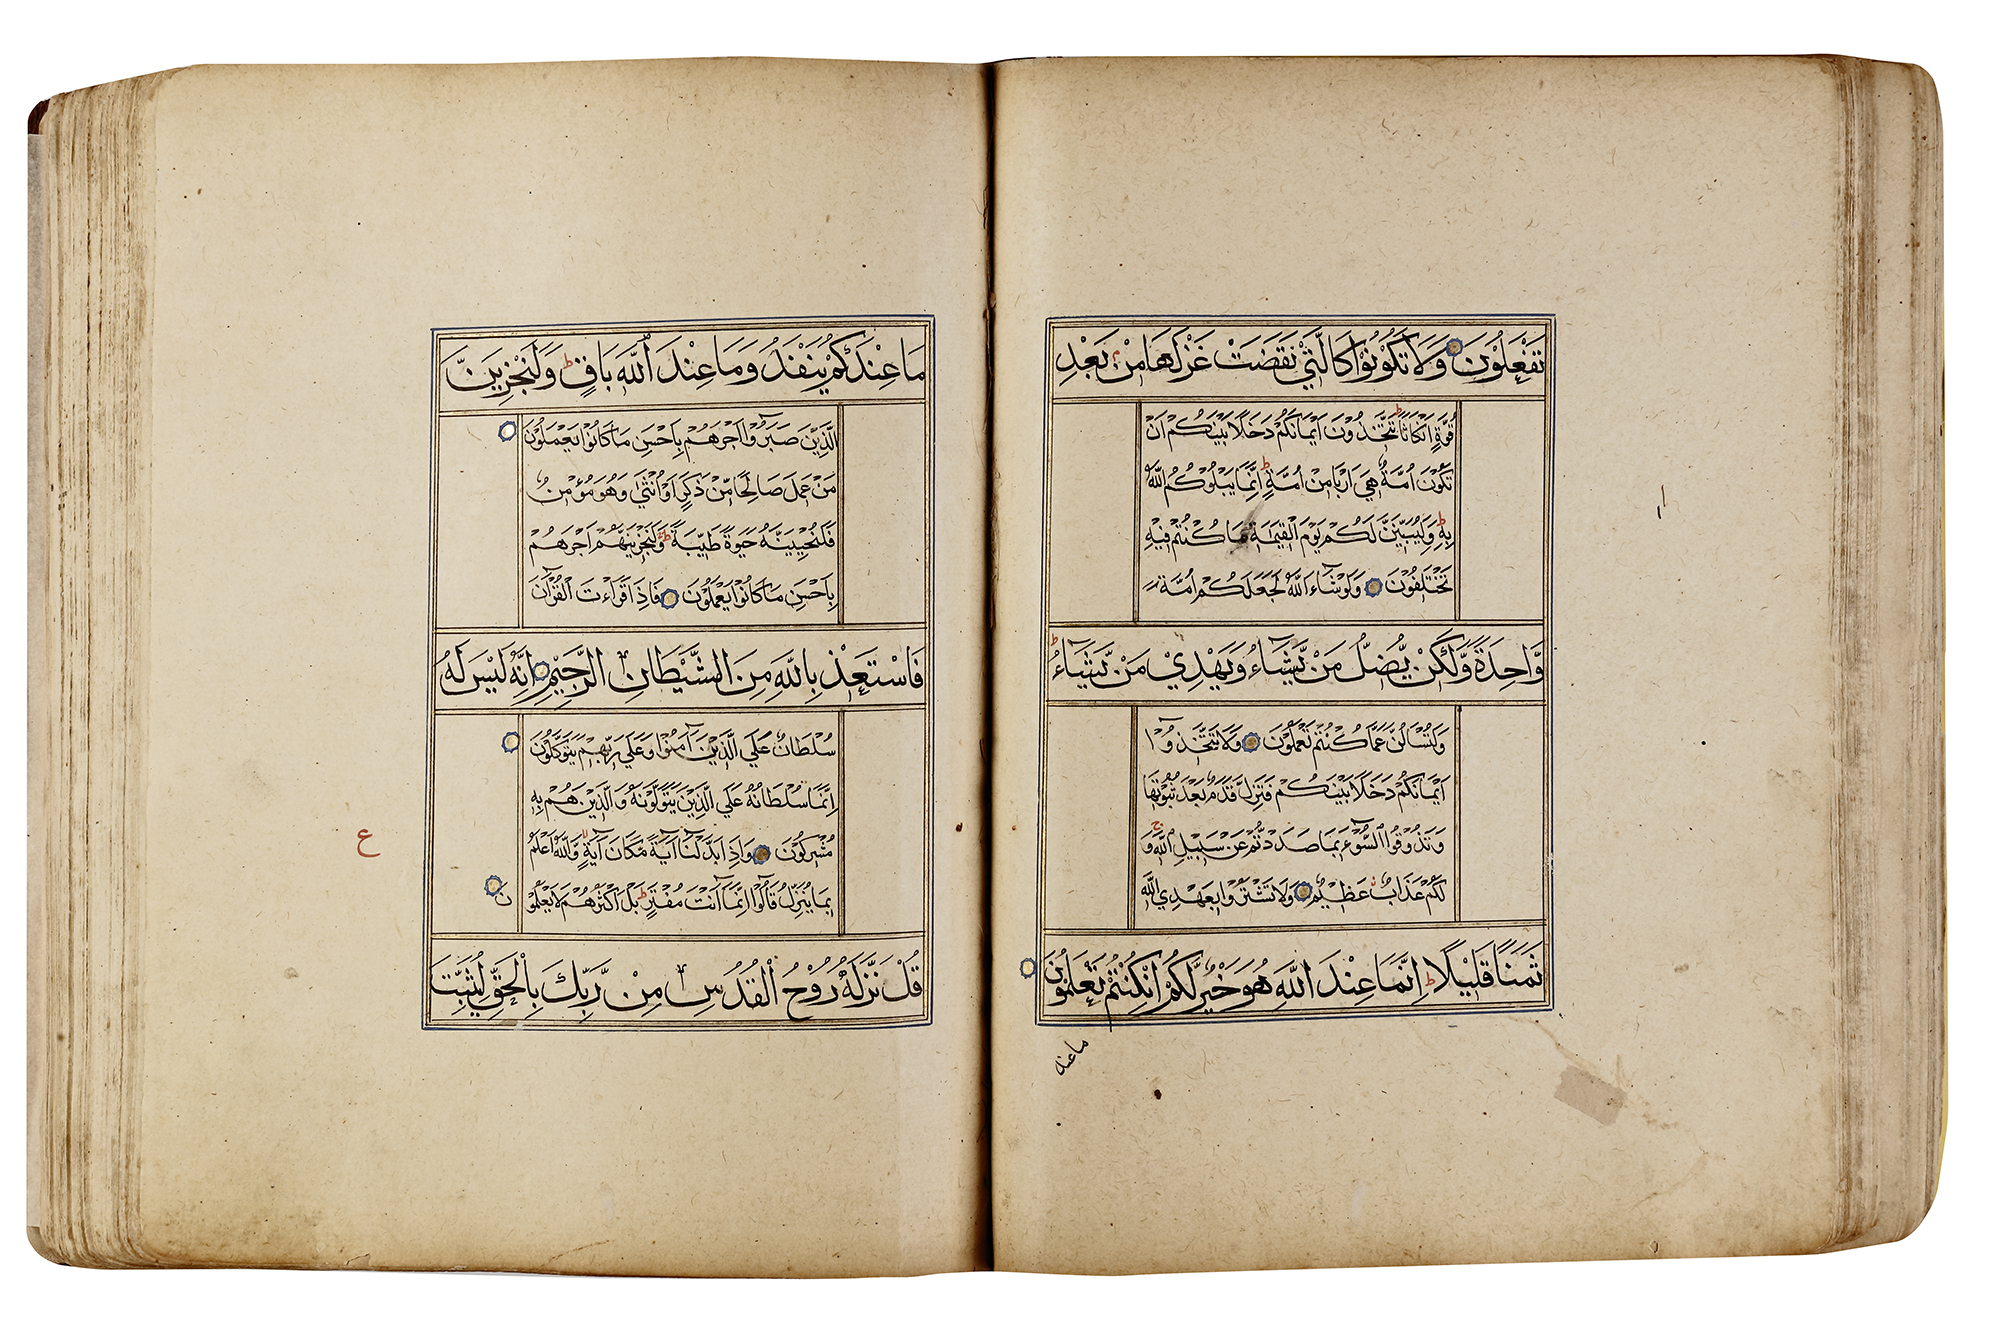 تَفْعَلُوْنَ وَلَا تَكُوْنُوْا كَالَّتِيْ نَقَضَتْ غَزْلَهَا مِنْ بَعْدِ
قُوَّةٍ اَنْكَاثًا تَتَّخِذُوْنَ اَيْمَانَكُمْ دَخَلًا بَيْنَكُمْ اَنْ
تَكُوْنَ اُمَّةٌ هِيَ اَرْبَا مِنْ اُمَّةٍ ط اِنَّمَا يَبْلُوْكُمُ اللّٰهُ
بِهٖ ط وَلَيُبَيِّنَنَّ لَكُمْ يَوْمَ الْقِيٰمَةِ مَا كُنْتُمْ فِيْهِ
تَخْتَلِفُوْنَ وَلَوْ شَاءَ اللّٰهُ لَجَعَلَكُمْ اُمَّةً
وَّاحِدَةً وَّلٰكِنْ يُّضِلُّ مَنْ يَّشَاءُ وَيَهْدِيْ مَنْ يَّشَاءُ ط
وَلَتُسْاَلُنَّ عَمَّا كُنْتُمْ تَعْمَلُوْنَ وَلَا تَتَّخِذُوْا
اَيْمَانَكُمْ دَخَلًا بَيْنَكُمْ فَتَزِلَّ قَدَمٌ بَعْدَ ثُبُوْتِهَا
وَتَذُوْقُوا السُّوْءَ بِمَا صَدَدْتُمْ عَنْ سَبِيْلِ اللّٰهِ ج وَ
لَكُمْ عَذَابٌ عَظِيْمٌ وَلَا تَشْتَرُوْا بِعَهْدِ اللّٰهِ
ثَمَنًا قَلِيْلًا ط اِنَّمَا عِنْدَ اللّٰهِ هُوَ خَيْرٌ لَّكُمْ اِنْ كُنْتُمْ تَعْلَمُوْنَ
ما عند
مَا عِنْدَكُمْ يَنْفَدُ وَمَا عِنْدَ اللّٰهِ بَاقٍ ط وَلَنَجْزِيَنَّ
الَّذِيْنَ صَبَرُوْا اَجْرَهُمْ بِاَحْسَنِ مَا كَانُوْا يَعْمَلُوْنَ
مَنْ عَمِلَ صَالِحًا مِّنْ ذَكَرٍ اَوْ اُنْثٰى وَهُوَ مُؤْمِنٌ
فَلَنُحْيِيَنَّهٗ حَيٰوةً طَيِّبَةً ط وَلَنَجْزِيَنَّهُمْ اَجْرَهُمْ
بِاَحْسَنِ مَا كَانُوْا يَعْمَلُوْنَ فَاِذَا قَرَاْتَ الْقُرْاٰنَ
فَاسْتَعِذْ بِاللّٰهِ مِنَ الشَّيْطَانِ الرَّجِيْمِ اِنَّهٗ لَيْسَ لَهٗ
سُلْطَانٌ عَلَى الَّذِيْنَ اٰمَنُوْا وَعَلٰى رَبِّهِمْ يَتَوَكَّلُوْنَ
اِنَّمَا سُلْطَانُهٗ عَلَى الَّذِيْنَ يَتَوَلَّوْنَهٗ وَالَّذِيْنَ هُمْ بِهٖ
مُشْرِكُوْنَ وَاِذَا بَدَّلْنَا اٰيَةً مَّكَانَ اٰيَةٍ لا وَّاللّٰهُ اَعْلَمُ
بِمَا يُنَزِّلُ قَالُوْا اِنَّمَا اَنْتَ مُفْتَرٍ ط بَلْ اَكْثَرُهُمْ لَا يَعْلَمُوْنَ
قُلْ نَزَّلَهٗ رُوْحُ الْقُدُسِ مِنْ رَّبِّكَ بِالْحَقِّ لِيُثَبِّتَ
ع